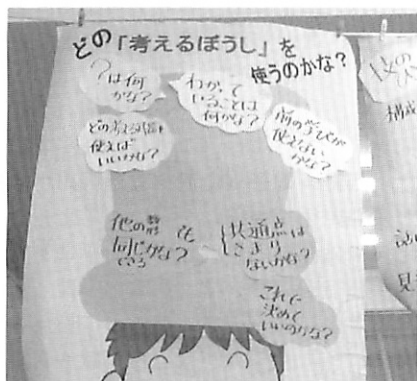 どの「考えるぼうし」を
使うのかな?
?は何
かな?
わかって
いることは
何かな?
前の学びが
使えない
かな?
どの考える
使えば
いいかな?
他の も
同じかな?
共通点は
きまり
ないかな?
これで
決めて
いいのかな?
構成